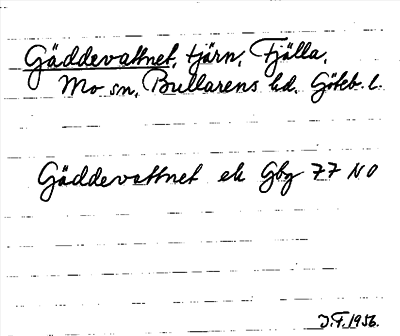 Gäddevattnet, tjärn, Fjälla,
Mo sn, Bullarens hd, Göteb. l.
Gäddevattnet ek Gbg 77 NO
J.F. 1956.